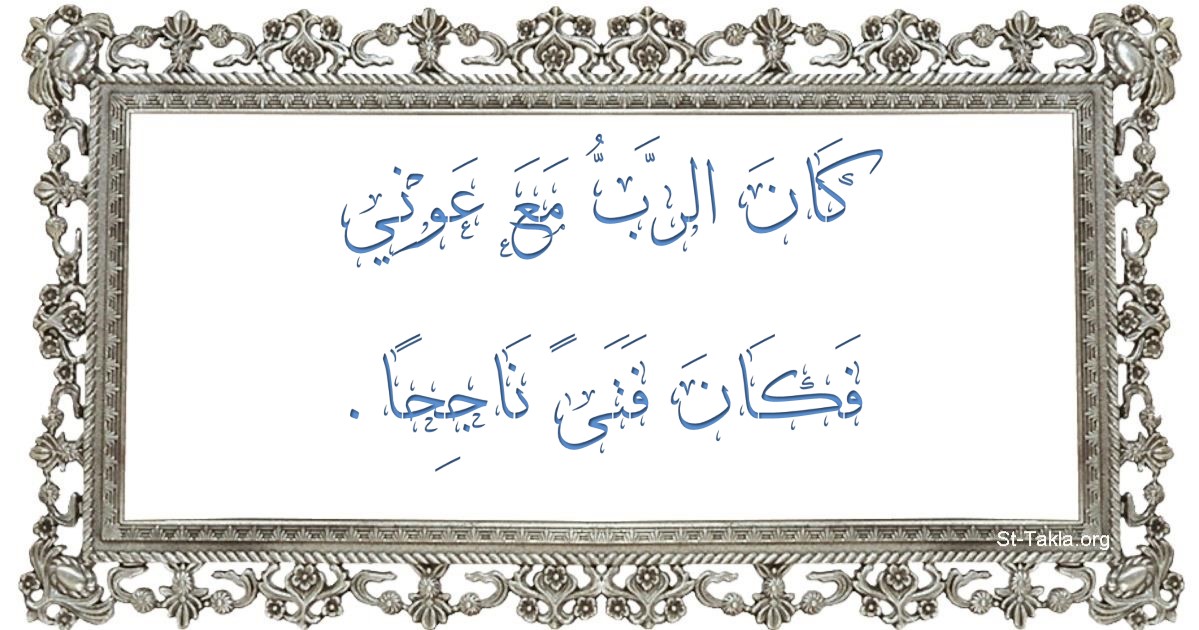 كَانَ الرَّبُّ مَعَ عَوْنِي
فَكَانَ فَتَىً نَاجِحًا.
St-Takla.org